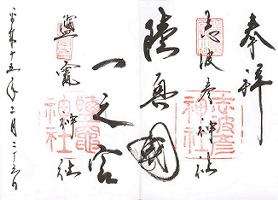 奉拝
志波彦神社
志波彦
神社
陸奥國
一之宮
鹽竈神社
鹽竈
神社
平成十五年二月二十五日